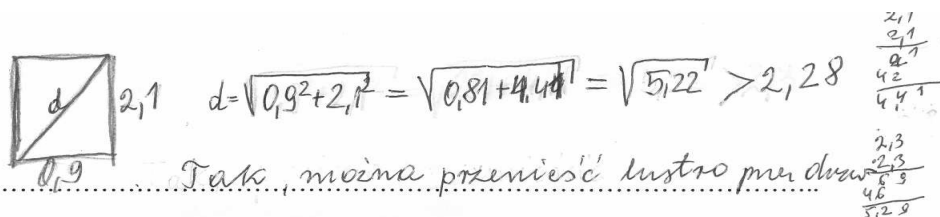 d 2,1 d=√0,9²+2,1² = √0,81+4,41 = √5,22 > 2,28
0,9
Tak, można przenieść lustro przez drzwi
2,1
2,1
21
42
4,41
2,3
2,3
69
46
5,29